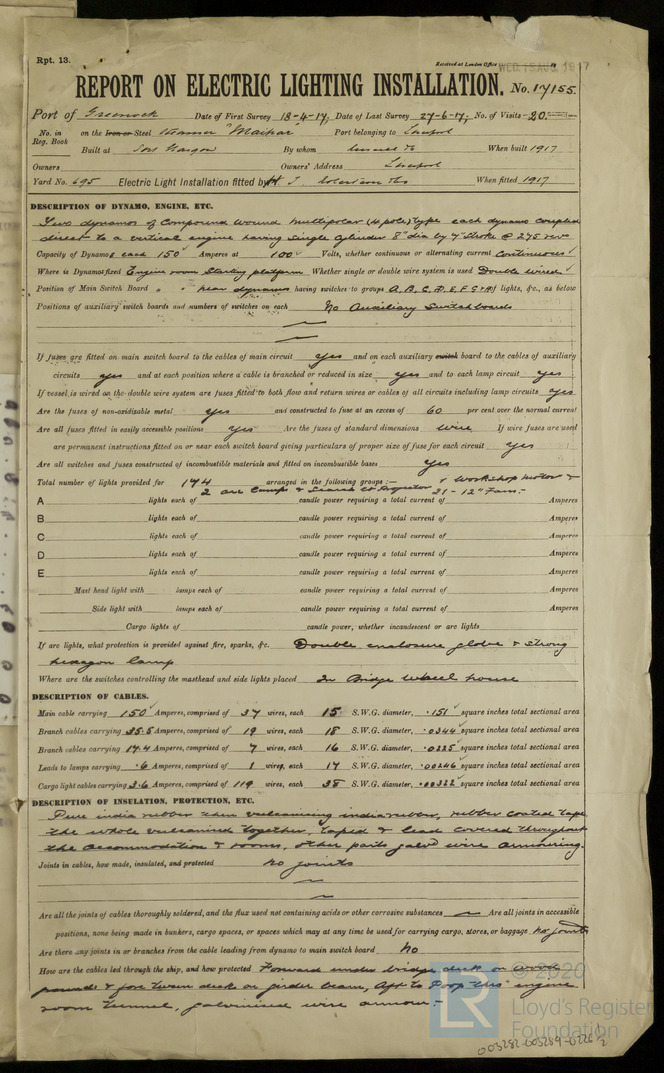 Rpt. 13.
Received at London Office WED. 15 AUG. 1917
REPORT ON ELECTRIC LIGHTING INSTALLATION. No. 17155.
Port of Greenock Date of First Survey 18-4-17; Date of Last Survey 27-6-17; No. of Visits 20.
No. in Reg. Book on the Iron or Steel Steamer "Maihar" Port belonging to Liverpool
Built at Port Glasgow By whom When built 1917
Owners Owners' Address Liverpool
Yard No. 695 Electric Light Installation fitted by When fitted 1917
DESCRIPTION OF DYNAMO, ENGINE, ETC.
Two dynamos of Compound wound multipolar (4 pole) type each dynamo coupled
direct to a vertical engine having single cylinder 8" dia by 7" stroke @ 275 rev
Capacity of Dynamos each 150 Amperes at 100 Volts, whether continuous or alternating current Continuous
Where is Dynamo fixed Engine room Starting platform Whether single or double wire system is used Double wired
Position of Main Switch Board " " near dynamos having switches to groups A, B, C, D, E, F G & H of lights, &c., as below
Positions of auxiliary switch boards and numbers of switches on each No Auxiliary Switchboards
If fuses are fitted on main switch board to the cables of main circuit yes and on each auxiliary switch board to the cables of auxiliary
circuits yes and at each position where a cable is branched or reduced in size yes and to each lamp circuit yes
If vessel is wired on the double wire system are fuses fitted to both flow and return wires or cables of all circuits including lamp circuits yes
Are the fuses of non-oxidizable metal yes and constructed to fuse at an excess of 60 per cent over the normal current
Are all fuses fitted in easily accessible positions yes Are the fuses of standard dimensions wire If wire fuses are used
are permanent instructions fitted on or near each switch board giving particulars of proper size of fuse for each circuit yes
Are all switches and fuses constructed of incombustible materials and fitted on incombustible bases yes
Total number of lights provided for 174 arranged in the following groups :— 1 Workshop motor &
2 arc Lamps & Search Lt Projector 21 - 12" Fans -
A lights each of candle power requiring a total current of Amperes
B lights each of candle power requiring a total current of Amperes
C lights each of candle power requiring a total current of Amperes
D lights each of candle power requiring a total current of Amperes
E lights each of candle power requiring a total current of Amperes
Mast head light with lamps each of candle power requiring a total current of Amperes
Side light with lamps each of candle power requiring a total current of Amperes
Cargo lights of candle power, whether incandescent or arc lights
If arc lights, what protection is provided against fire, sparks, &c. Double enclosure globe & strong
hexagon lamp
Where are the switches controlling the masthead and side lights placed In Bridge Wheel house
DESCRIPTION OF CABLES.
Main cable carrying 150 Amperes, comprised of 37 wires, each 15 S.W.G. diameter, .151 square inches total sectional area
Branch cables carrying 35.5 Amperes, comprised of 19 wires, each 18 S.W.G. diameter, .0344 square inches total sectional area
Branch cables carrying 17.4 Amperes, comprised of 7 wires, each 16 S.W.G. diameter, .0225 square inches total sectional area
Leads to lamps carrying .6 Amperes, comprised of 1 wires, each 17 S.W.G. diameter, .00246 square inches total sectional area
Cargo light cables carrying 3.6 Amperes, comprised of 119 wires, each 38 S.W.G. diameter, .00322 square inches total sectional area
DESCRIPTION OF INSULATION, PROTECTION, ETC.
Pure india rubber then vulcanising indiarubber, rubber coated tape
the whole vulcanised together, taped & lead covered throughout
the accommodation & rooms, other parts galvd wire armouring.
Joints in cables, how made, insulated, and protected No joints
Are all the joints of cables thoroughly soldered, and the flux used not containing acids or other corrosive substances — Are all joints in accessible
positions, none being made in bunkers, cargo spaces, or spaces which may at any time be used for carrying cargo, stores, or baggage No joints
Are there any joints in or branches from the cable leading from dynamo to main switch board No
How are the cables led through the ship, and how protected Forward under bridge deck on wood
grounds & fore tween deck on girder beam, Aft to Poop thro' engine
room tunnel, galvanised wire armour.-
© 2020
LR
Lloyd's Register
Foundation
003282-003289-0226 1/2